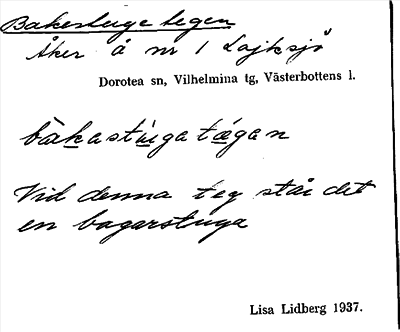 Bakestugetegen
Åker å nr 1 Lajksjö
Dorotea sn, Vilhelmina tg, Västerbottens l.
bàkastúgatægan
Vid denna teg står det
en bagarstuga
Lisa Lidberg 1937.